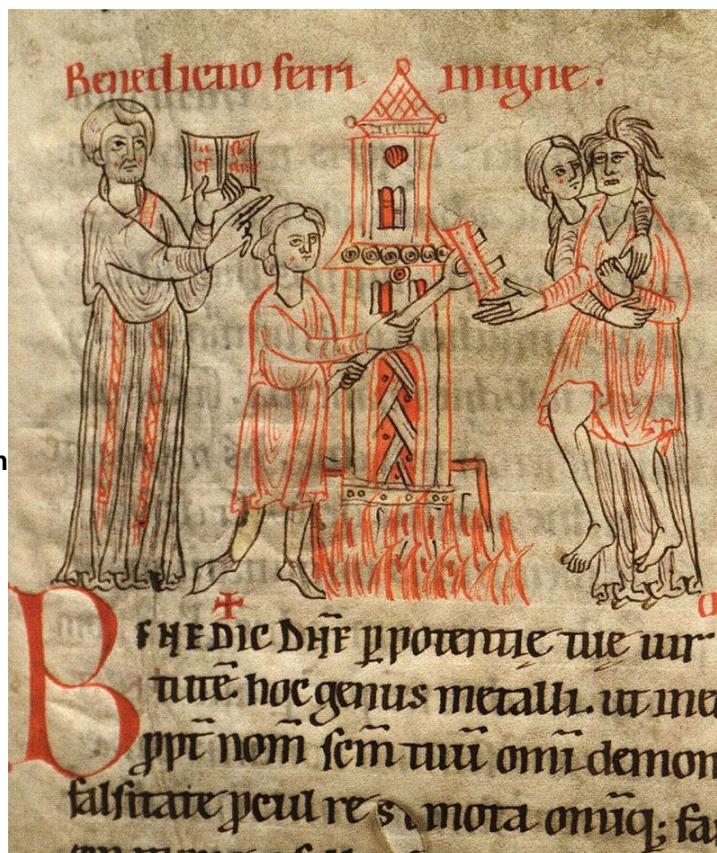 Benedictio ferri in igne.
BENEDIC DÑE ꝑ potentię tue uir
tutē hoc genus metalli. ut in
ꝓpt nom̄ scm̄ tuū om̄i demon
falsitate ꝓcul re mota om̄iq; fa